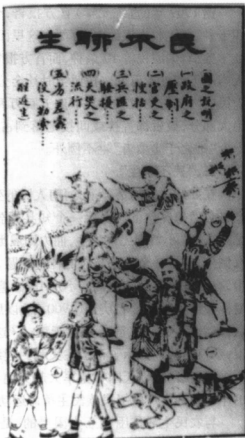 民不聊生
(圖之説明)
(一)政府之
壓制……
(二)官吏之
搜括……
(三)兵匪之
騷擾……
(四)天災之
流行……
(五)劣差蠹
役之勒索……